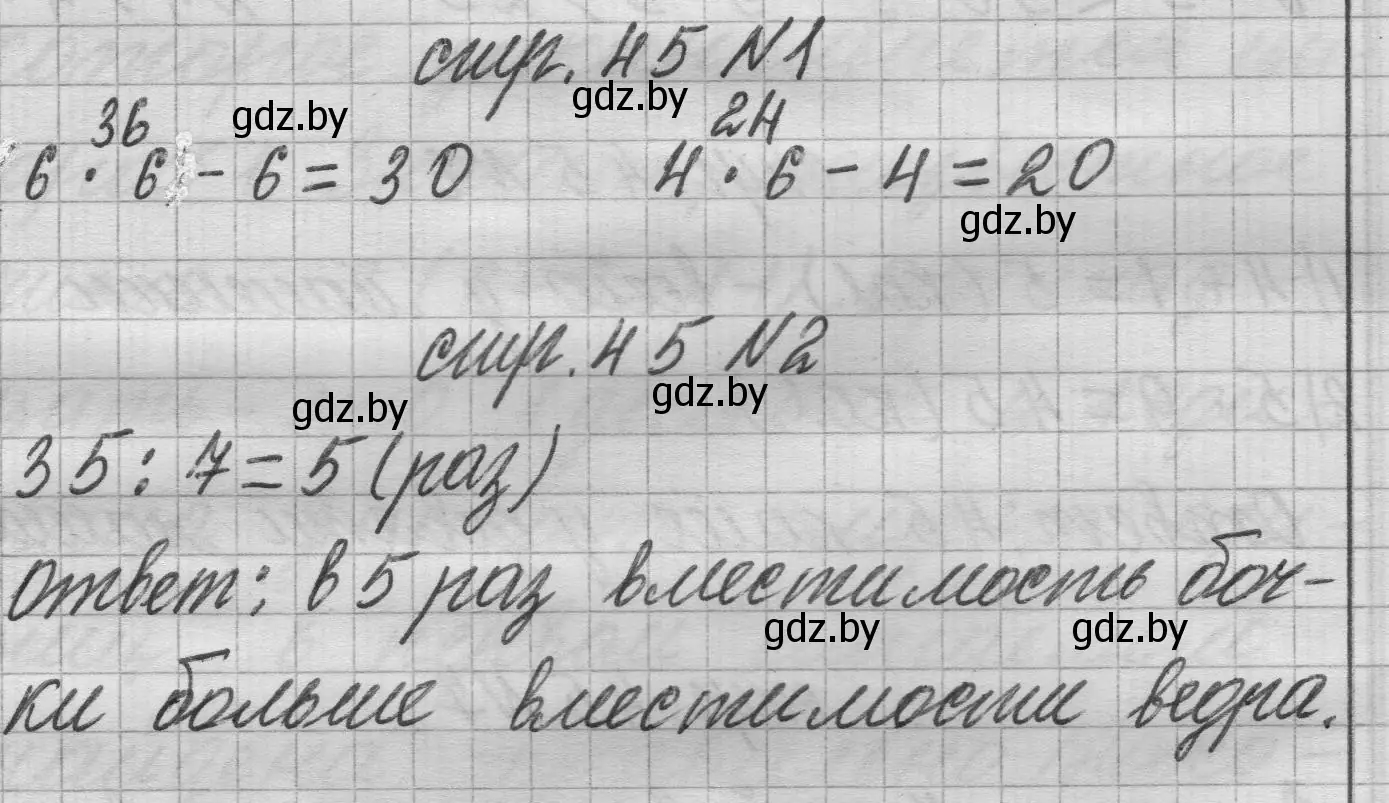 стр. 45 N1
gdz.by
36
gdz.by
24
6 · 6 - 6 = 30
4 · 6 - 4 = 20
gdz.by
стр. 45 N2
gdz.by
gdz.by
35 : 7 = 5 (раз)
ответ: в 5 раз вместимость боч-
gdz.by
gdz.by
ки больше вместимости ведра.